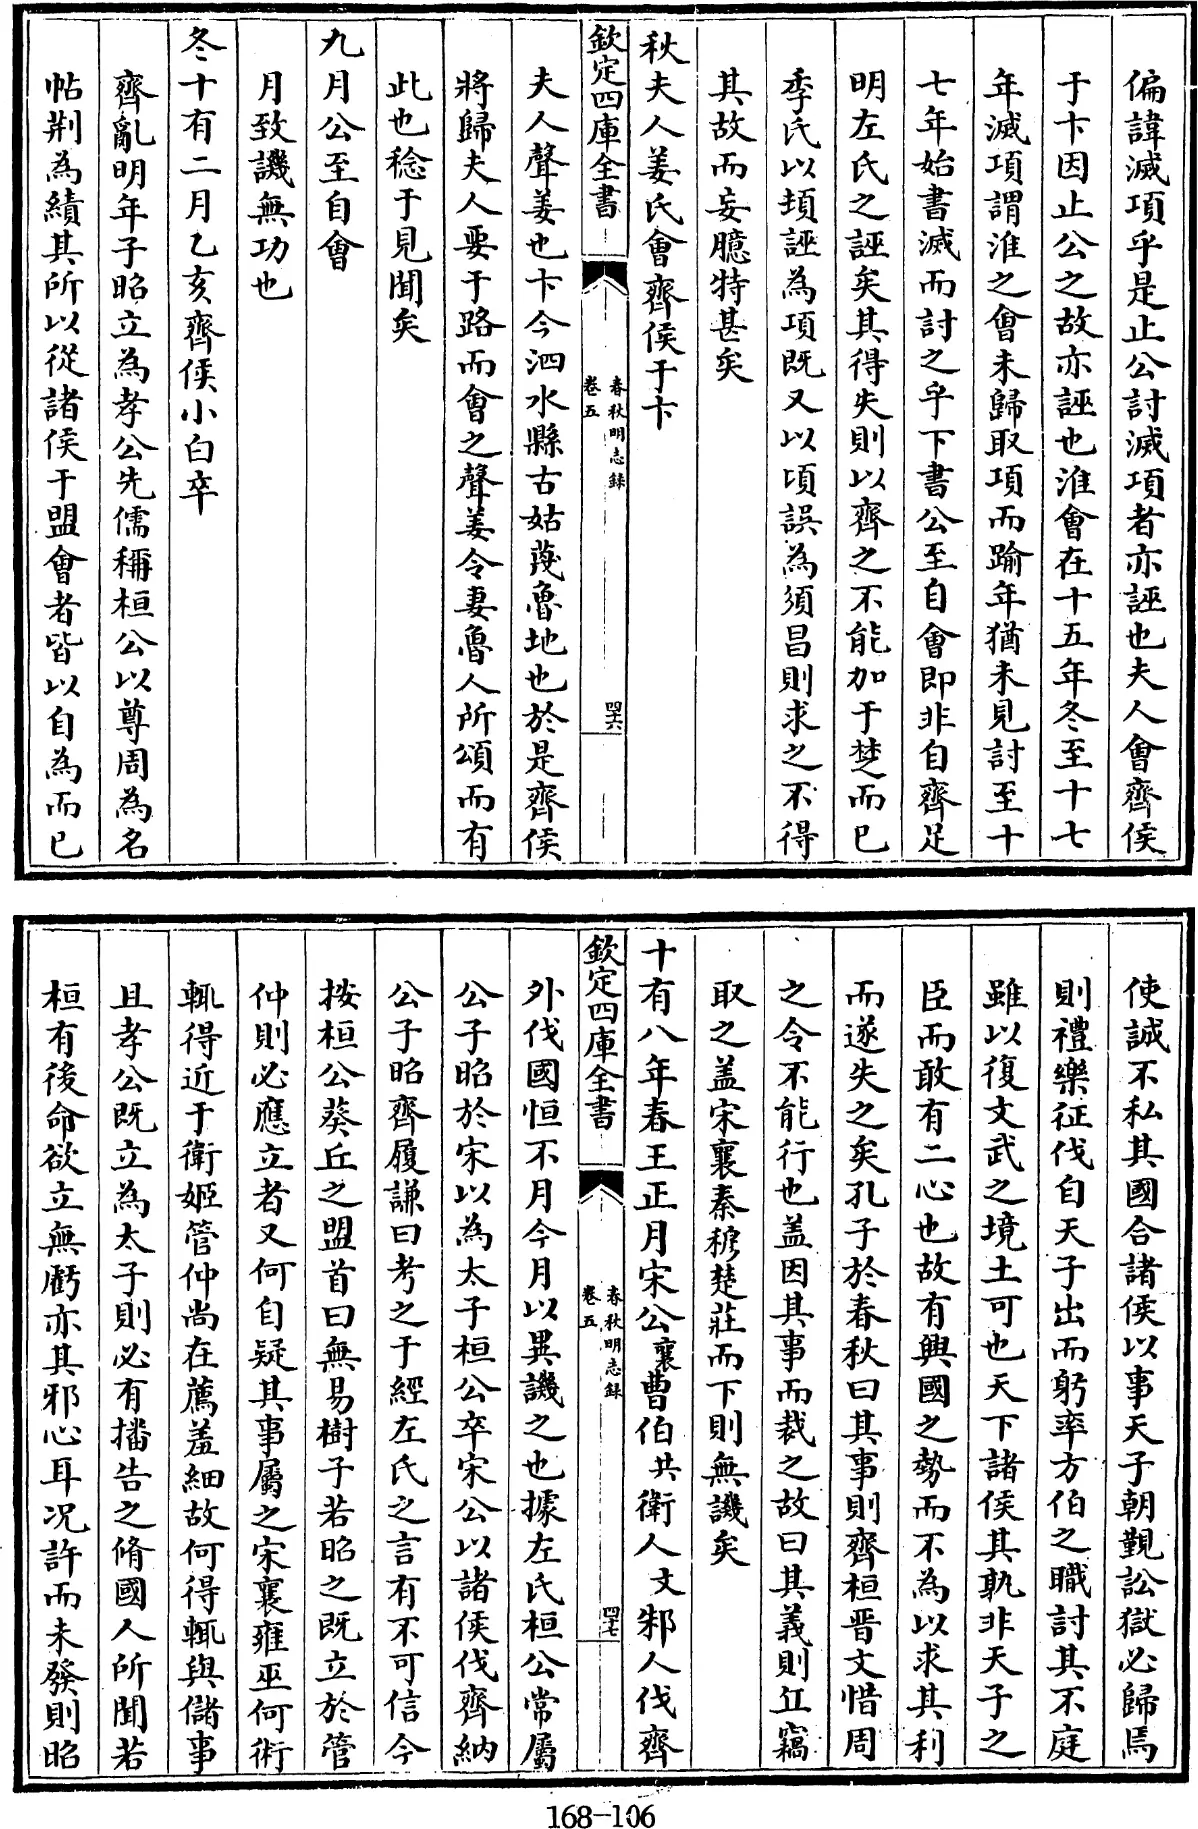 偏諱滅項乎是止公討滅項者亦誣也夫人會齊侯
于卞因止公之故亦誣也淮會在十五年冬至十七
年滅項謂淮之會未歸取項而踰年猶未見討至十
七年始書滅而討之乎下書公至自會即非自齊足
明左氏之誣矣其得失則以齊之不能加于楚而已
季氏以頊誣為項既又以項誤為須昌則求之不得
其故而妄臆特甚矣
秋夫人姜氏會齊侯于卞
欽定四庫全書
春秋明志錄
卷五
四六
夫人聲姜也卞今泗水縣古姑蔑魯地也於是齊侯
將歸夫人要于路而會之聲姜令妻魯人所頌而有
此也稔于見聞矣
九月公至自會
月致譏無功也
冬十有二月乙亥齊侯小白卒
齊亂明年子昭立為孝公先儒稱桓公以尊周為名
帖荆為績其所以從諸侯于盟會者皆以自為而已
使誠不私其國合諸侯以事天子朝覲訟獄必歸焉
則禮樂征伐自天子出而躬率方伯之職討其不庭
雖以復文武之境土可也天下諸侯其孰非天子之
臣而敢有二心也故有興國之勢而不為以求其利
而遂失之矣孔子於春秋曰其事則齊桓晋文惜周
之令不能行也盖因其事而裁之故曰其義則丘竊
取之盖宋襄秦穆楚莊而下則無譏矣
十有八年春王正月宋公襄曹伯共衛人文邾人伐齊
欽定四庫全書
春秋明志錄
卷五
四七
外伐國恒不月今月以異譏之也據左氏桓公常屬
公子昭於宋以為太子桓公卒宋公以諸侯伐齊納
公子昭齊履謙曰考之于經左氏之言有不可信今
按桓公葵丘之盟首曰無易樹子若昭之既立於管
仲則必應立者又何自疑其事屬之宋襄雍巫何術
輒得近于衛姬管仲尚在薦羞細故何得輒與儲事
且孝公既立為太子則必有播告之脩國人所聞若
桓有後命欲立無虧亦其邪心耳况許而未發則昭
168-106